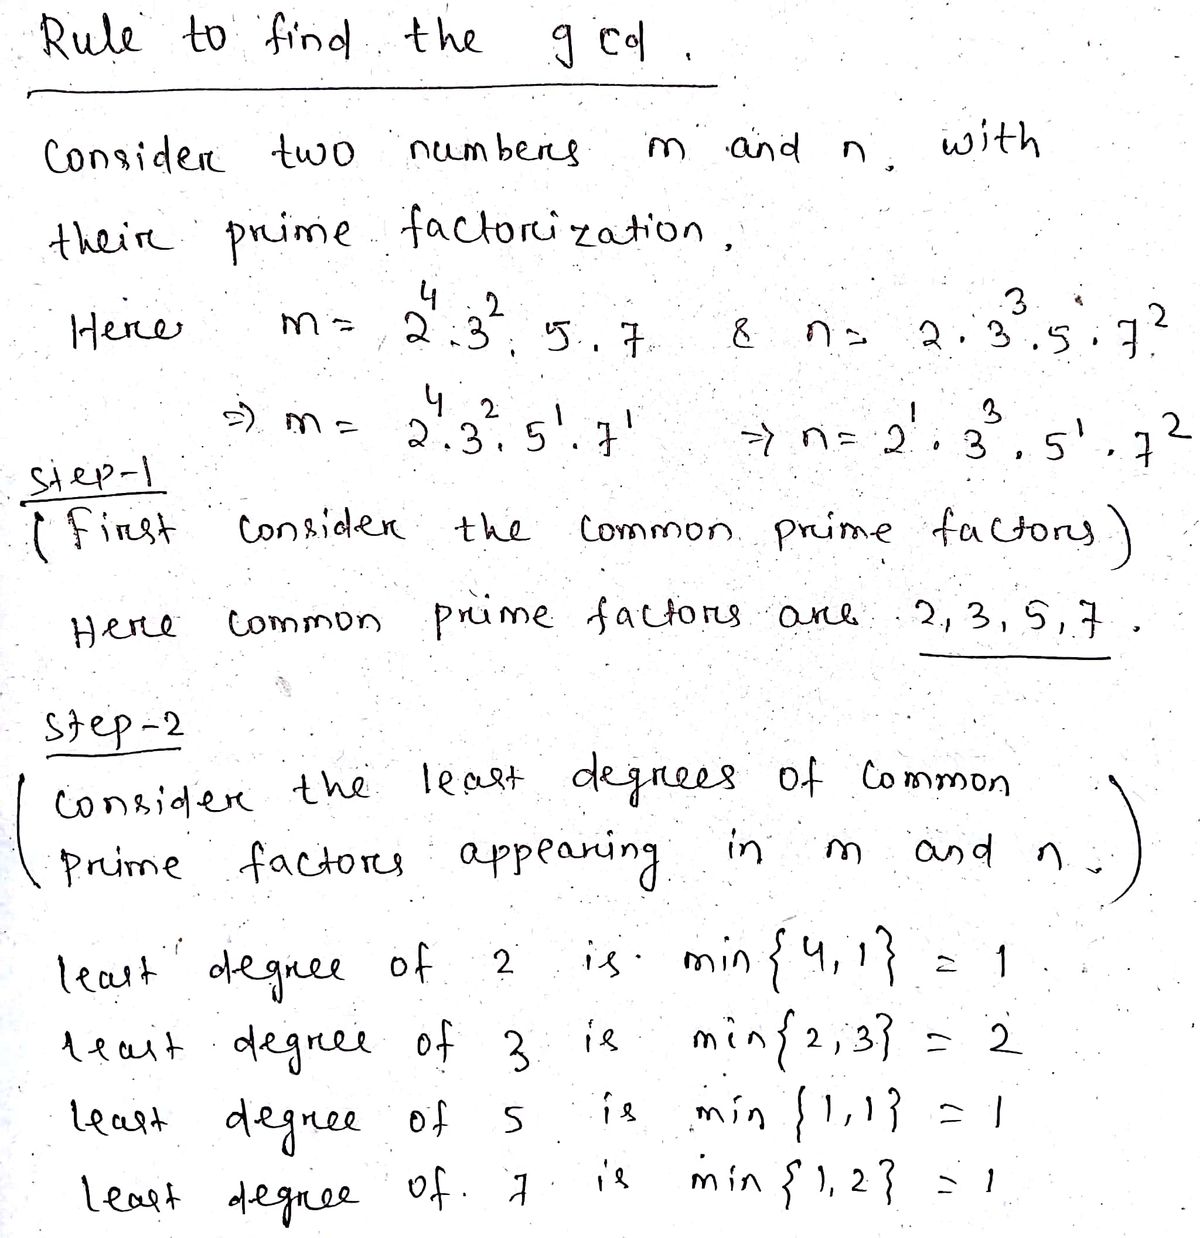 Rule to find the gcd.
Consider two numbers m and n, with
their prime factorization,
Here m = 2⁴.3².5.7 & n = 2.3³.5.7².
⇒ m = 2⁴.3².5¹.7¹ ⇒ n = 2¹.3³.5¹.7²
Step-1
(First consider the common prime factors)
Here common prime factors are 2,3,5,7.
Step-2
(consider the least degrees of common
prime factors appearing in m and n.)
least degree of 2 is min{4,1} = 1
least degree of 3 is min{2,3} = 2
least degree of 5 is min{1,1} = 1
least degree of 7 is min{1,2} = 1